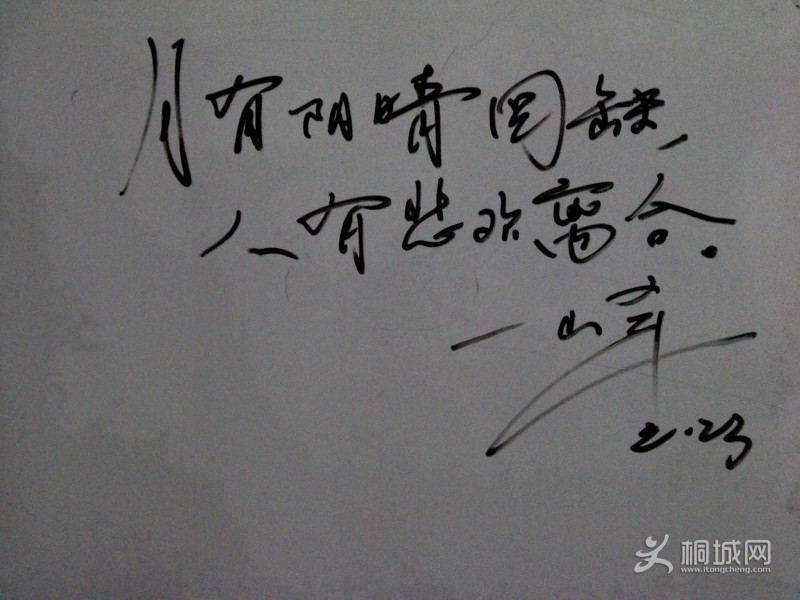 月有阴晴圆缺,
人有悲欢离合.
一山峰
2.23
桐城网
www.itongcheng.com